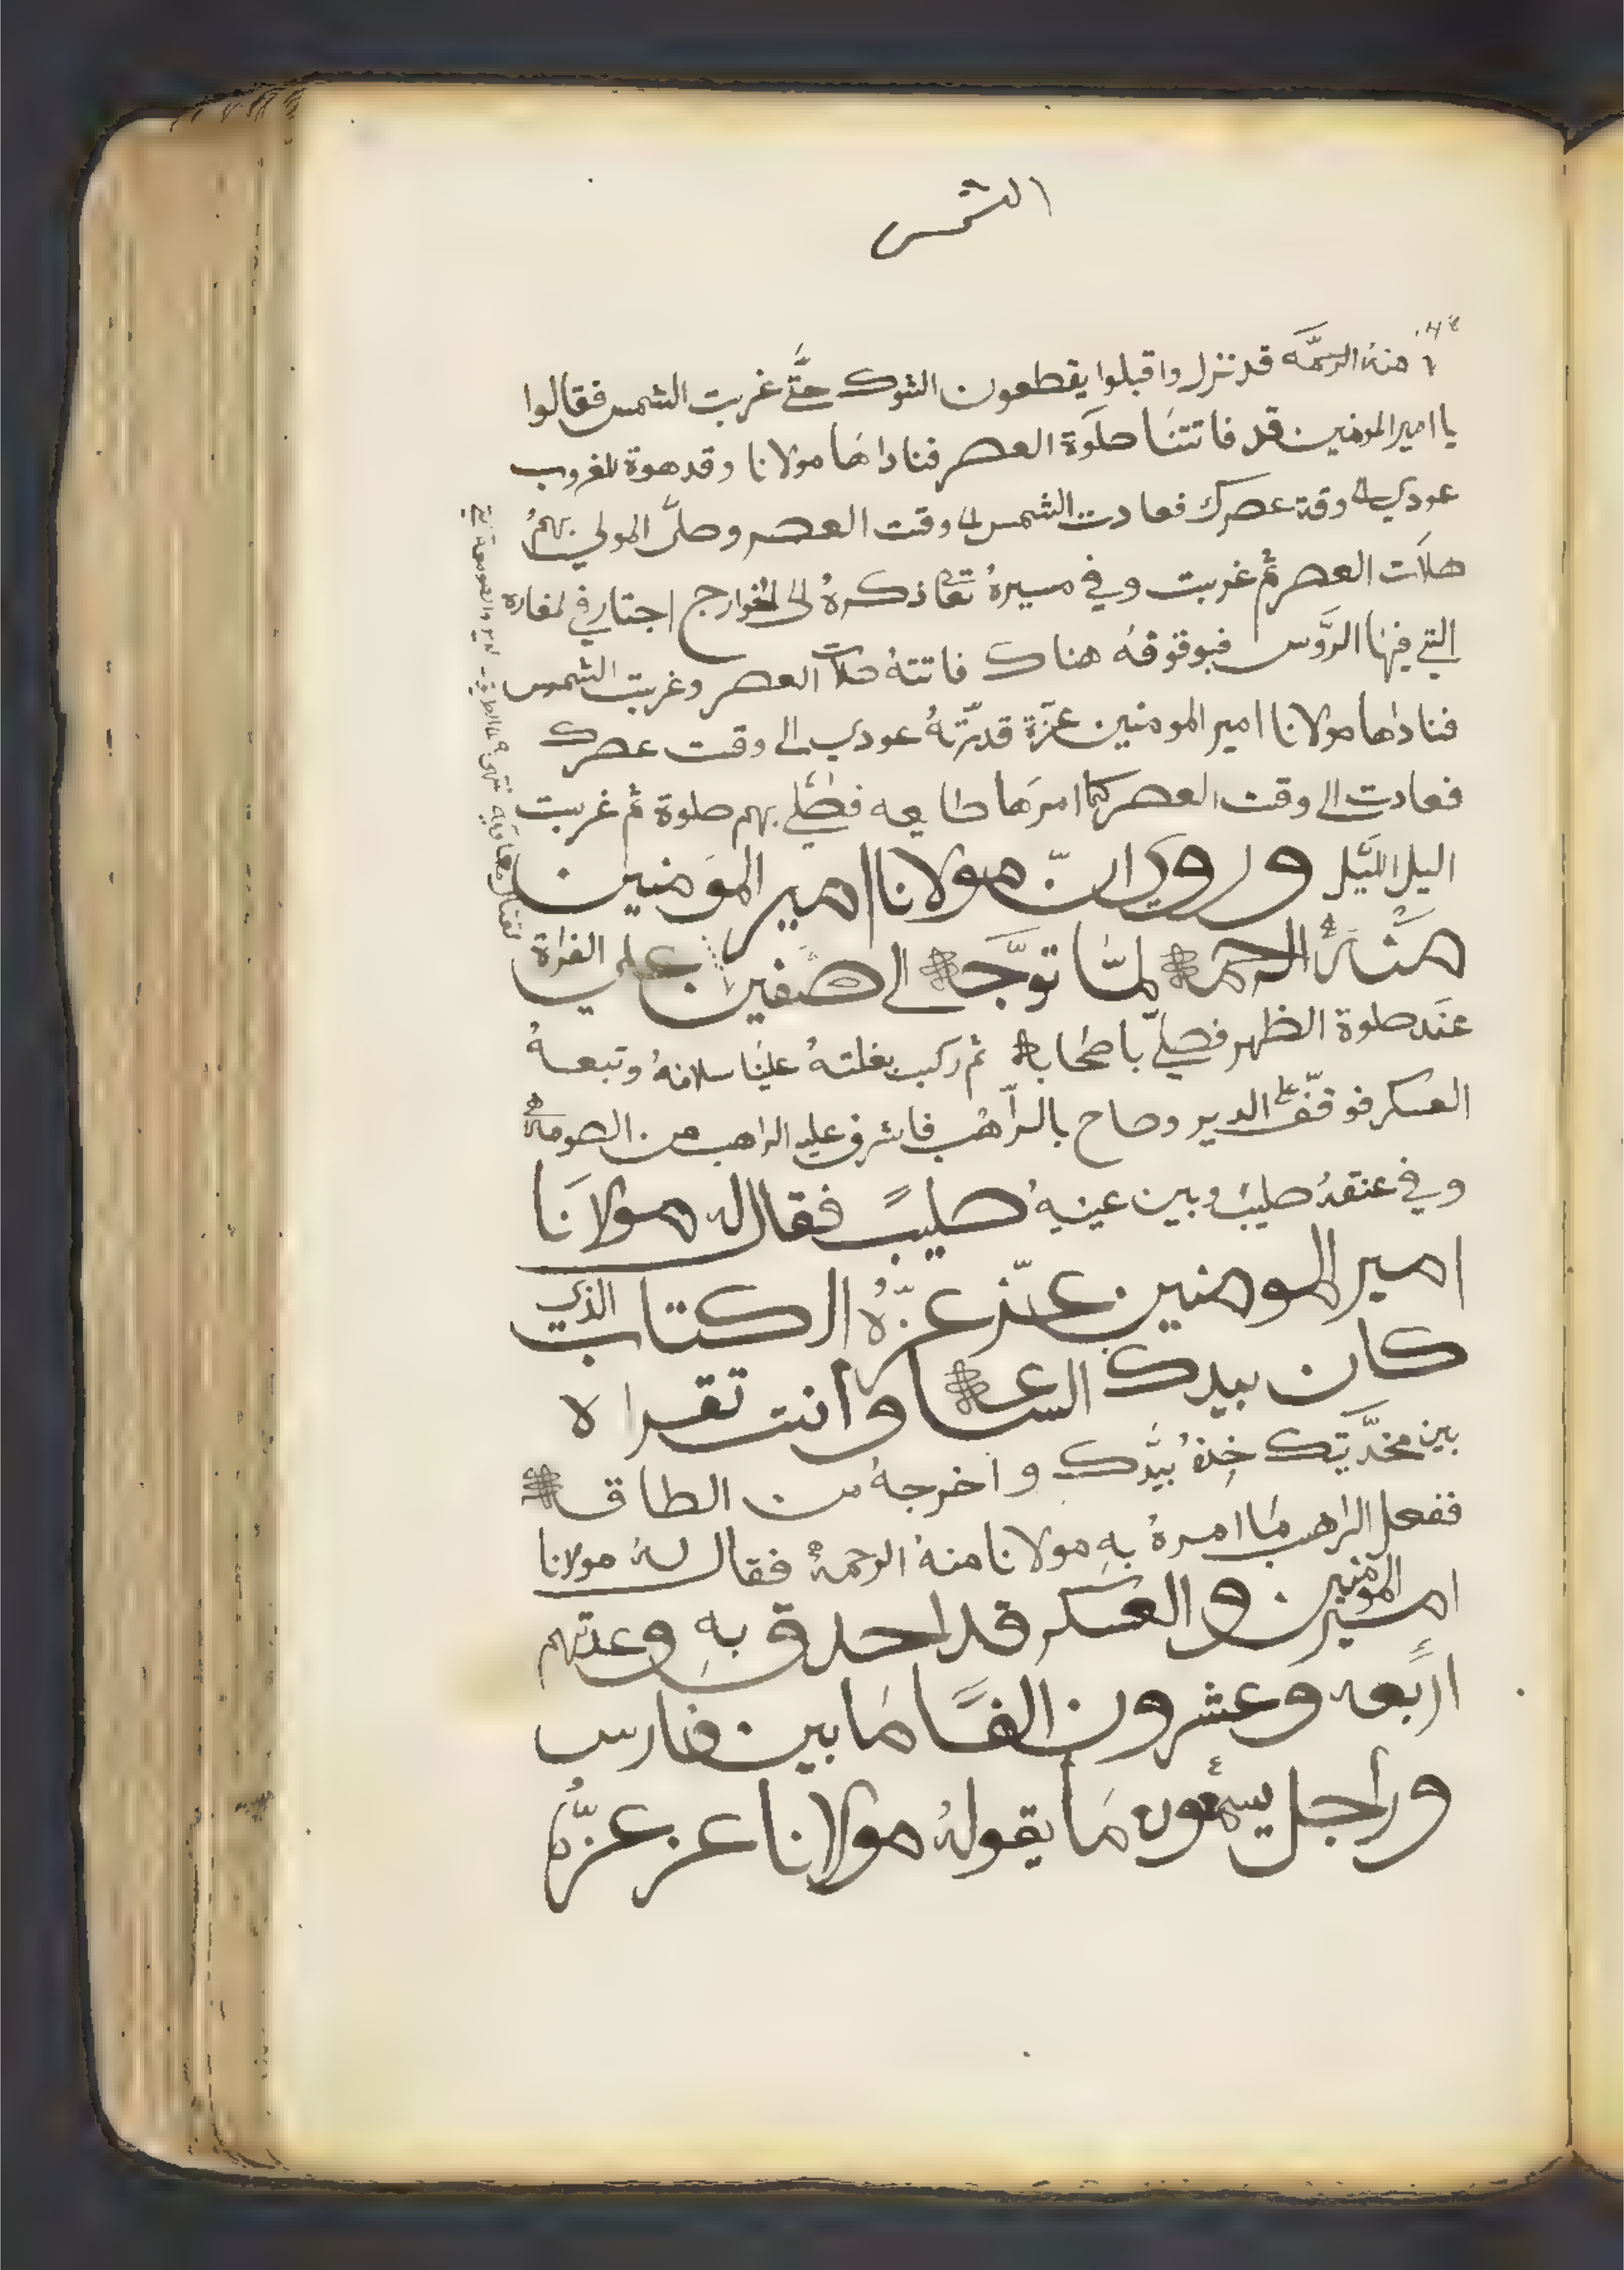 الشمس
منه الرحمه قد نزل واقبلوا يقطعون الشوك حتَّى غربت الشمس فقالوا
يا امير المومنين قد فاتتنا صلوة العصر فناداها مولانا وقد هوة للغروب
عودي وقة عصرك فعادت الشمس وقت العصر وصلَّى المولي بهم
صلات العصر ثم غربت وفي مسيرهُ ذكرهُ الى الخوارج اجتاز في لمغاره
التي فيها الرَّوس فبوقوفه هناك فاتتهُ صلاة العصر وغربت الشمس
فناداها مولانا امير المومنين عزَّة قدرَتهُ عودي الى وقت عصرك
فعادت الى وقت العصر كما امرها طايعه فصلي بهم صلوة ثم غربت
اليل الليّل وروي انّ مولانا امير المومنين
منهُ الرحمة لمَّا توجَّه الى صفين علي الفراة
عند صلوة الظهر فصلّي باصحابه ثم ركب بغلتهُ علينا سلامهُ وتبعهُ
العسكر فوقف علي الدير وصاح بالراهب فاشرف عليه الراهب من الصومعه
وفي عنقهُ صليب وبين عينيهُ صليبً فقال له مولانا
امير المومنين عزّ عزّهُ الكتاب الذي
كان بيدك الساعة وانت تقراه
بين مخدَّتيك خذهُ بيدك واخرجهُ من الطاقه
ففعل الراهب ما امرهُ به مولانا منهُ الرحمهُ فقال لهُ مولانا
امير المومنين والعسكر قد احدق به وعدتهم
اربعه وعشرون الفًا ما بين فارس
وراجل يسمعون ما يقولهُ مولانا عز عزّهُ